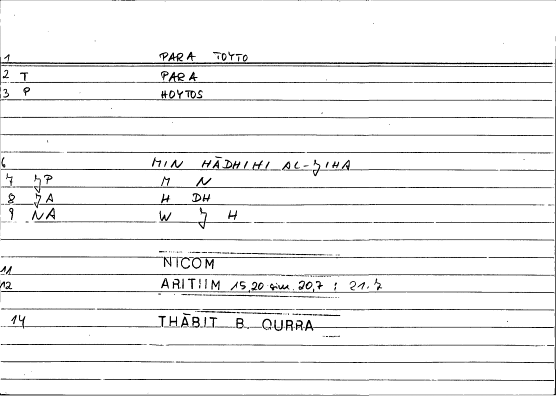 1 PARA TOYTO
2 T PARA
3 P HOYTOS
6 MIN HĀDHIHI AL-JIHA
7 JP M N
8 JA H DH
9 NA W J H
11 NICOM
12 ARITIIM 15,20 sim. 20,7 ; 21.7
14 THĀBIT B. QURRA